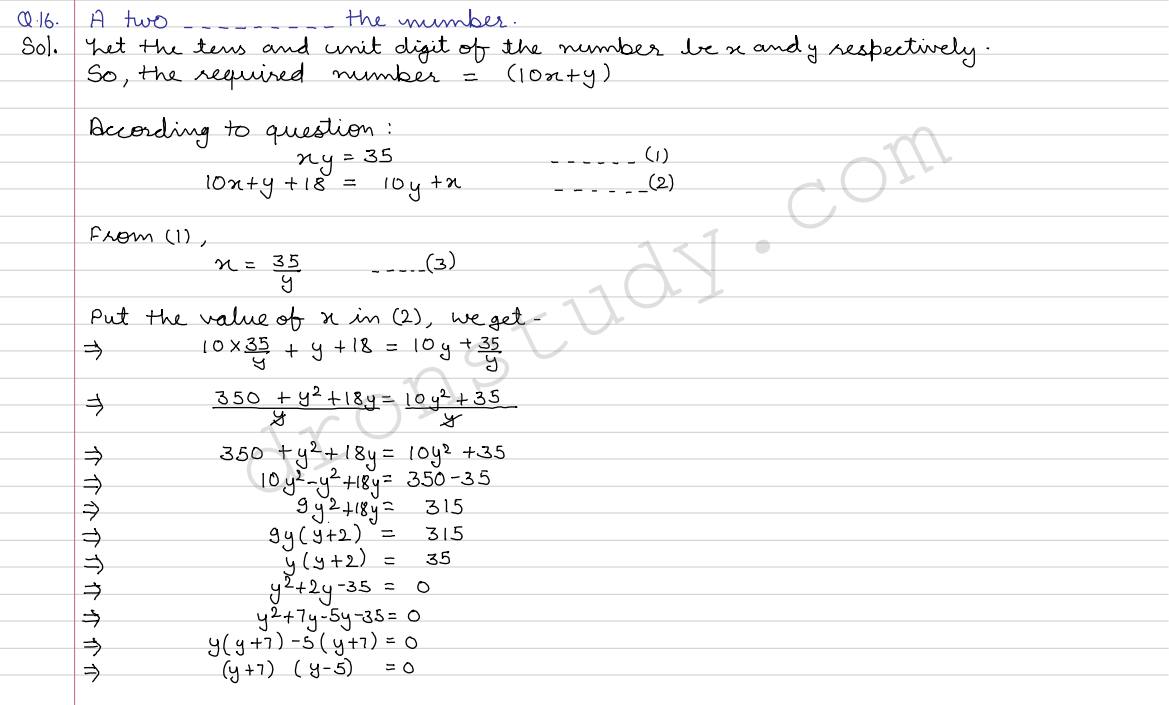 Q.16. A two _ _ _ _ _ _ _ _ _ the number.
Sol. Let the tens and unit digit of the number be x and y respectively.
So, the required number = (10x+y)
According to question :
xy = 35 _ _ _ _ _ _ (1)
10x+y +18 = 10y +x _ _ _ _ _ _ (2)
From (1),
x = 35/y _ _ _ _ _ (3)
Put the value of x in (2), we get -
⇒ 10 × 35/y + y +18 = 10y + 35/y
⇒ (350 + y² +18y)/y = (10y² + 35)/y
⇒ 350 + y² + 18y = 10y² +35
⇒ 10y² - y² +18y = 350 - 35
⇒ 9y² +18y = 315
⇒ 9y(y+2) = 315
⇒ y(y+2) = 35
⇒ y²+2y-35 = 0
⇒ y²+7y-5y-35 = 0
⇒ y(y+7) -5(y+7) = 0
⇒ (y+7) (y-5) = 0
dronstudy.com